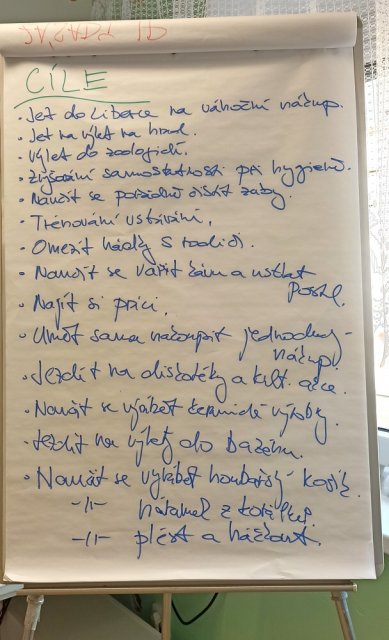 CÍLE
· Jet do Liberce na vánoční nákup.
· Jet na výlet na hrad.
· Výlet do zoologické.
· Zvyšování samostatnosti při hygieně.
· Naučit se pořádně čistit zuby.
· Trénování ustávání,
· Omezit hádky s rodiči.
· Naučit se vařit sám a ustlat
postel.
· Najít si práci.
· Umět sama nakoupit jednoduchý
nákup.
· Jezdit na diskotéky a kult. akce.
· Naučit se vyrábět keramické výrobky.
· Jezdit na výlety do bazénu.
· Naučit se vyrábět houbařský košík.
-//- náramek z korálků.
-//- plést a háčkovat.